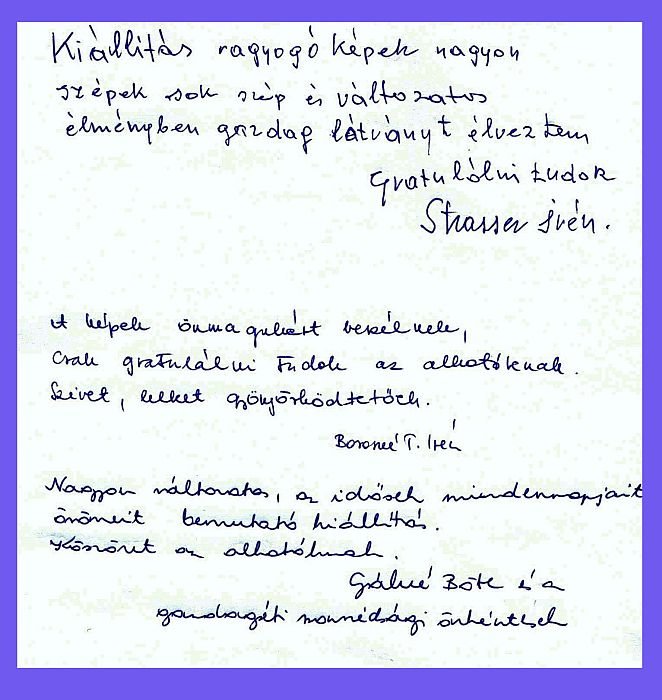 Kiállítás ragyogó képek nagyon
szépek sok szép és változatos
élményben gazdag látványt élveztem
Gratulálni tudok
Strasser Irén.
A képek önmagukért beszélnek,
Csak gratulálni tudok az alkotóknak.
Szivet, lelket gyönyörködtetőek.
Boroneé T. Irén
Nagyon változatos, az idősek mindennapjait
örömeit bemutató kiállítás.
Köszönet az alkotóknak.
Gálné Böte és a
szomszédsági önkéntesek